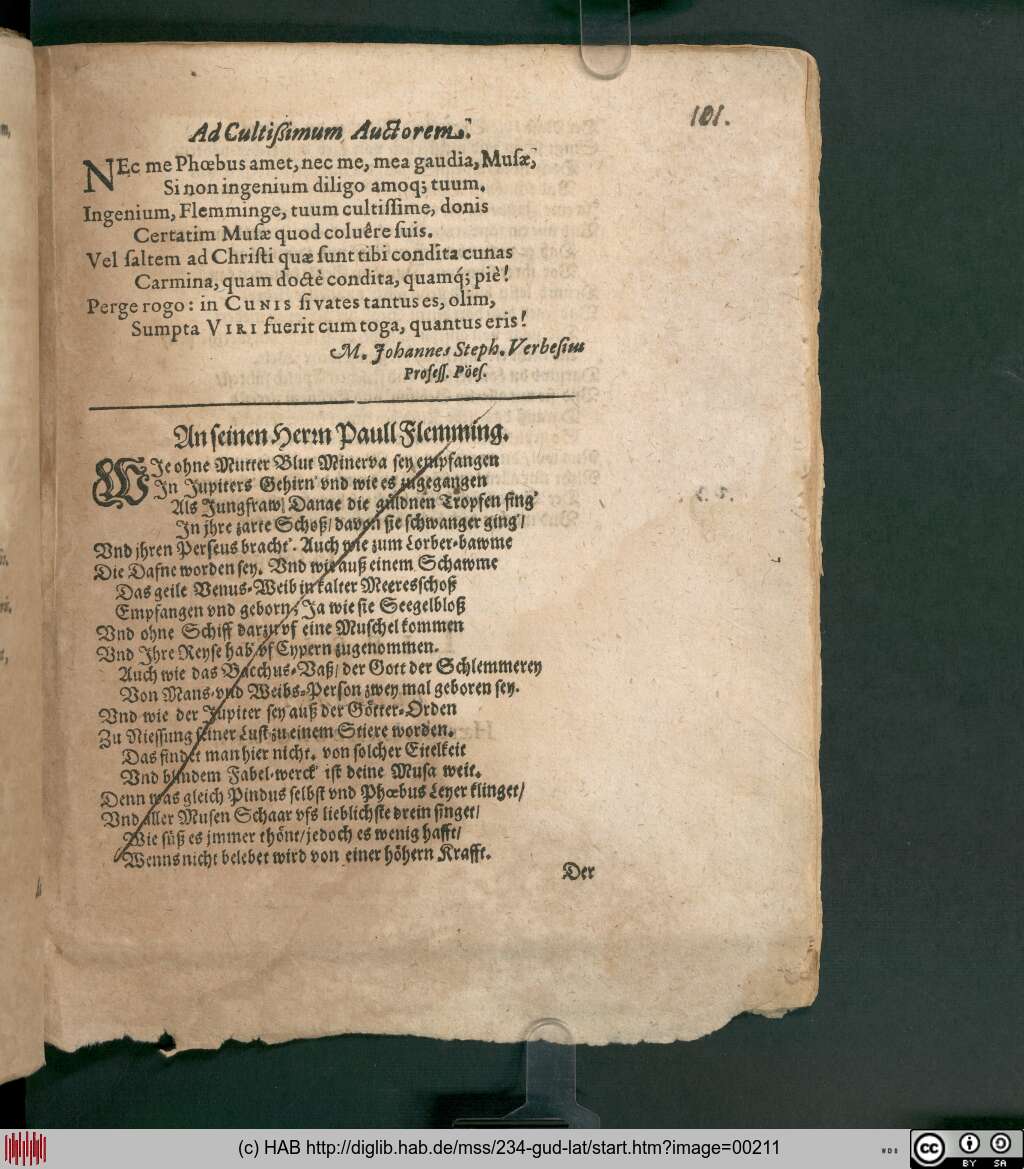 101.
Ad Cultißimum Auctorem.
NEc me Phœbus amet, nec me, mea gaudia, Musæ,
Si non ingenium diligo amoq; tuum.
Ingenium, Flemminge, tuum cultissime, donis
Certatim Musæ quod coluêre suis.
Vel saltem ad Christi quæ sunt tibi condita cunas
Carmina, quam doctè condita, quamq́; piè!
Perge rogo: in CUNIS si vates tantus es, olim,
Sumpta VIRI fuerit cum toga, quantus eris!
M. Johannes Steph. Verbesius
Profess. Pöes.
An seinen Herrn Paull Flemming.
WJe ohne Mutter Blut Minerva sey empfangen
Jn Jupiters Gehirn' vnd wie es zugegangen
Als Jungfraw Danae die güldnen Tropfen fing'
Jn jhre zarte Schoß/ davon sie schwanger ging'/
Vnd jhren Perseus bracht'. Auch wie zum Lorber-bawme
Die Dafne worden sey. Vnd wie auß einem Schawme
Das geile Venus-Weib in kalter Meeresschoß
Empfangen vnd geborn; Ja wie sie Seegelbloß
Vnd ohne Schiff darzu vf eine Muschel kommen
Vnd Jhre Reyse hab' vf Cypern zugenommen.
Auch wie das Bacchus-Vaß/ der Gott der Schlemmerey
Von Mans- vnd Weibs-Person zwey mal geboren sey.
Vnd wie der Jupiter sey auß der Götter-Orden
Zu Niessung seiner Lust zu einem Stiere worden.
Das findet man hier nicht. von solcher Eitelkeit
Vnd blindem Fabel-werck' ist deine Musa weit.
Denn was gleich Pindus selbst vnd Phœbus Leyer klinget/
Vnd aller Musen Schaar vfs lieblichste drein singet/
Wie süß es jmmer thönt/ jedoch es wenig hafft/
Wenns nicht belebet wird von einer höhern Krafft.
Der
(c) HAB http://diglib.hab.de/mss/234-gud-lat/start.htm?image=00211
cc BY SA